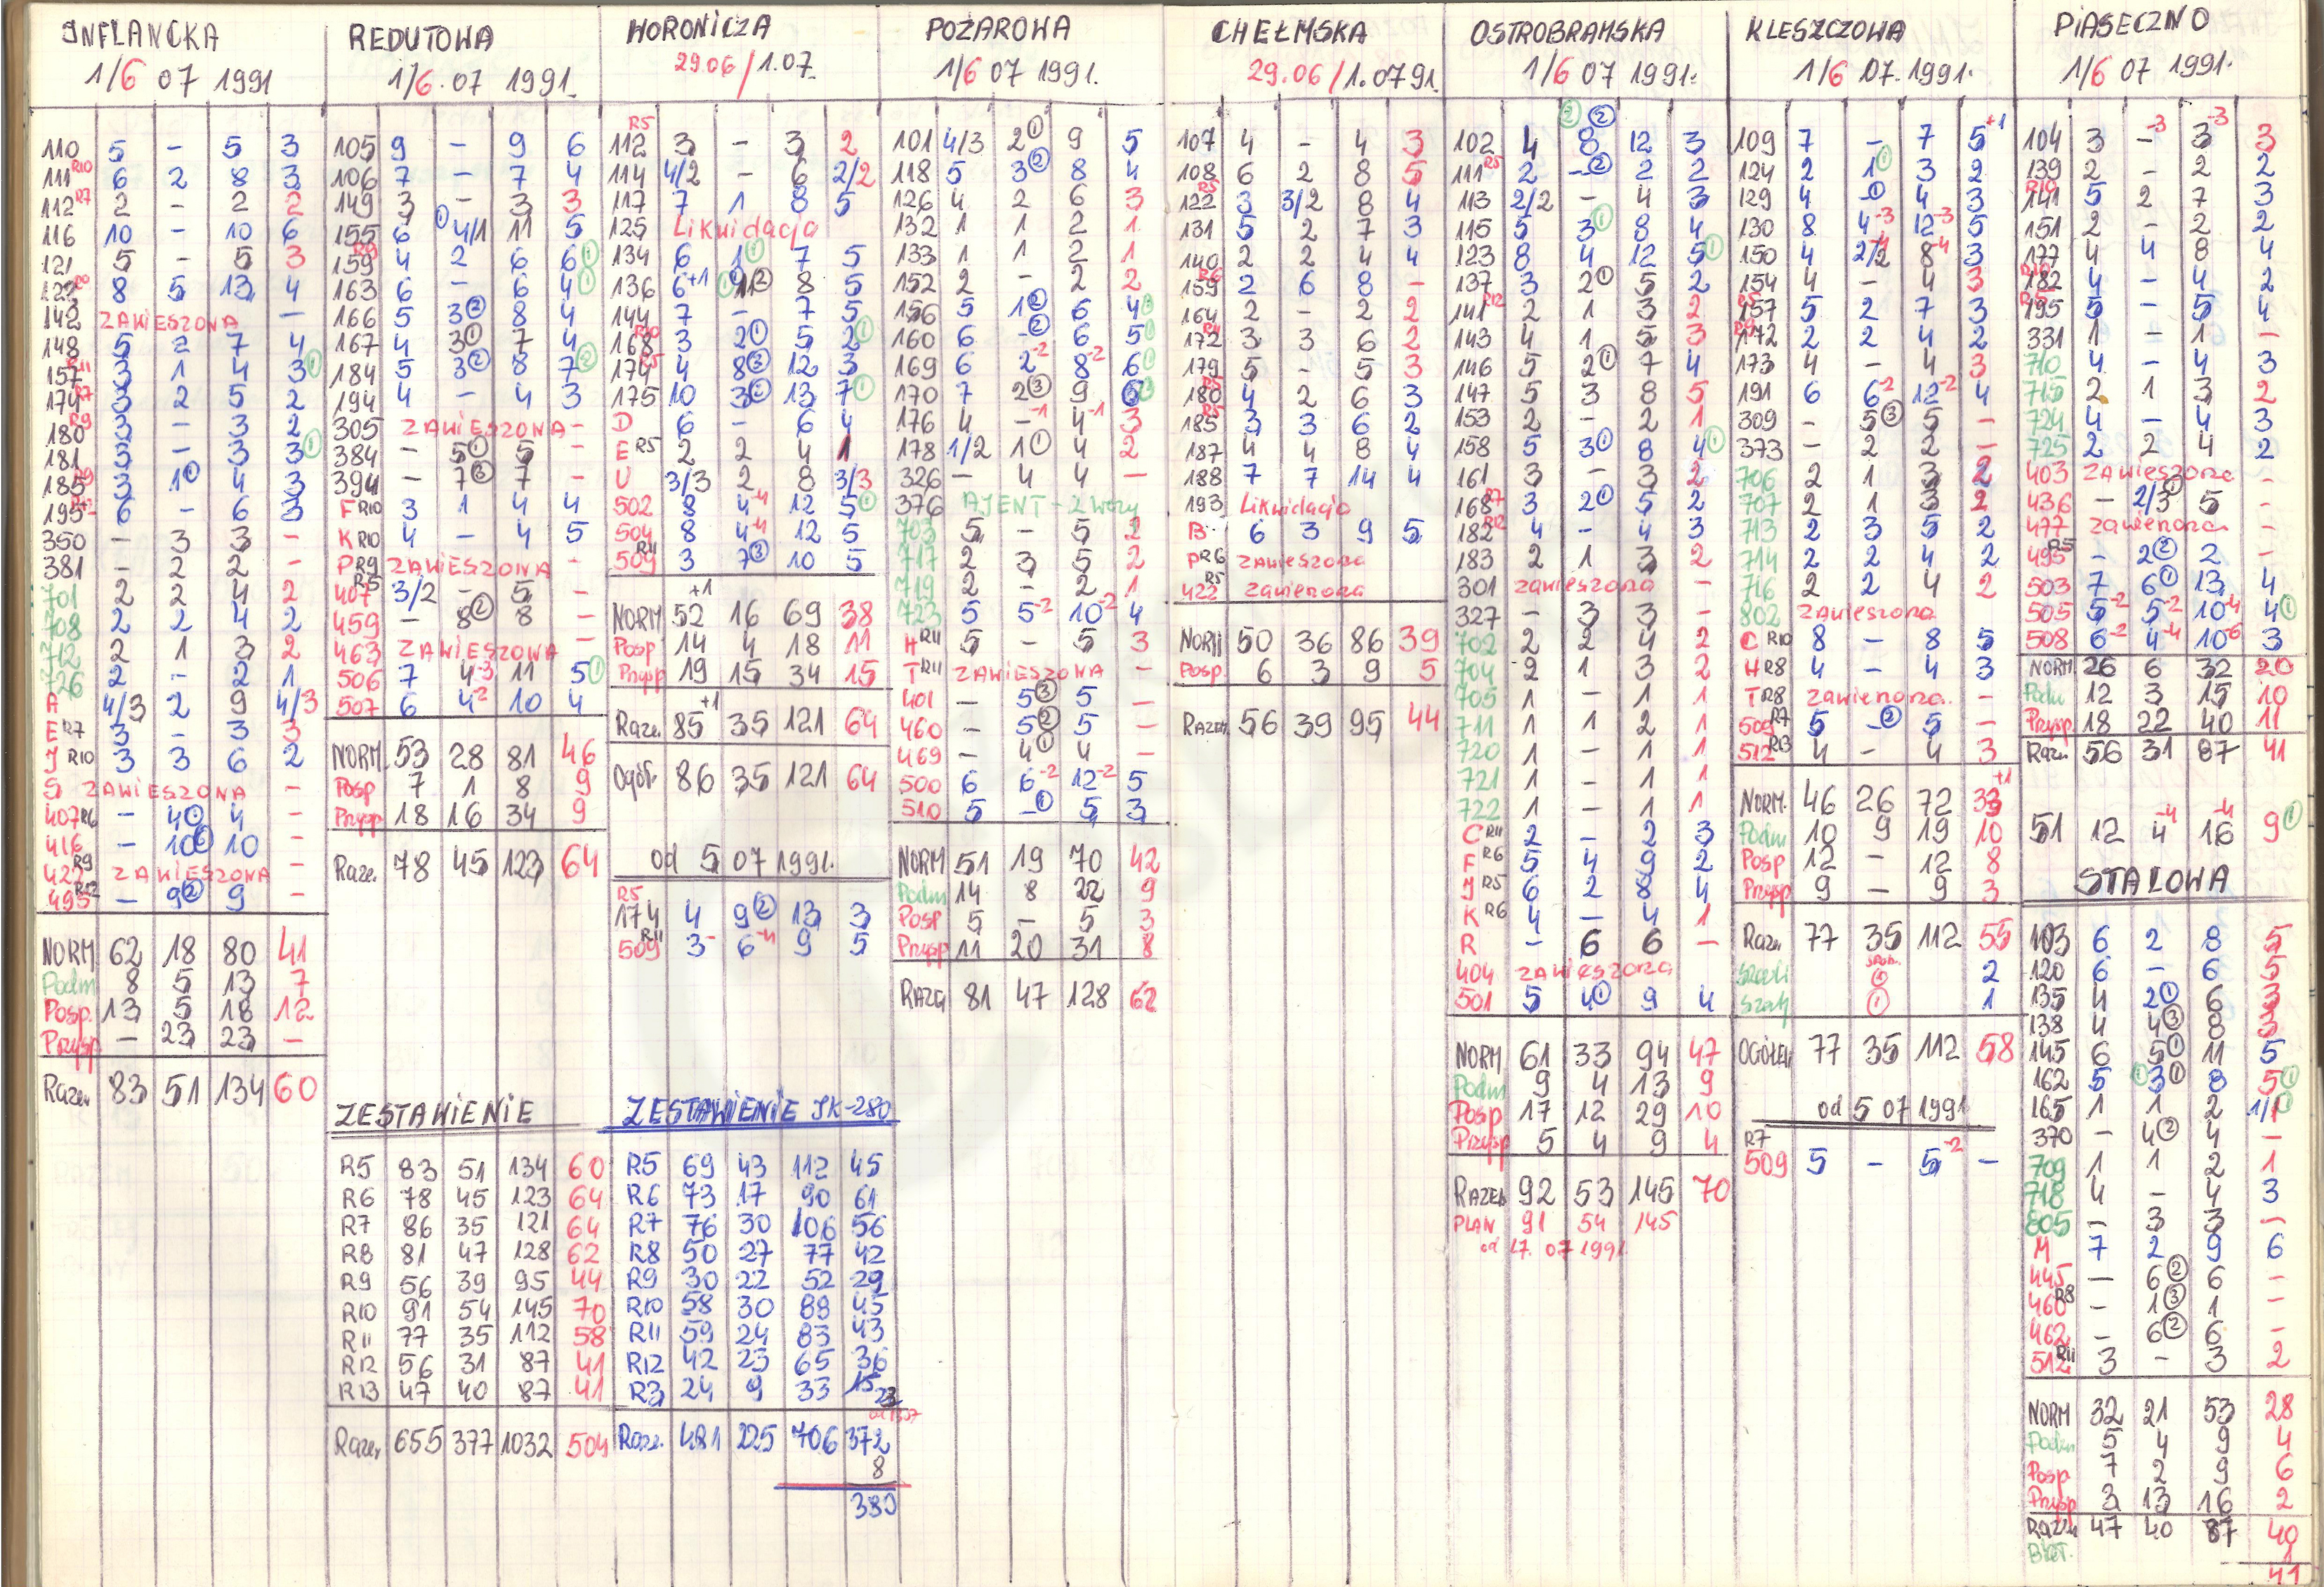 INFLANCKA
1/6 07 1991
110 5 - 5 3
111 R10 6 2 8 3
112 R7 2 - 2 2
116 10 - 10 6
121 5 - 5 3
122 8 5 13 4
142 ZAWIESZONA -
148 5 2 7 4
157 R11 3 1 4 3 ①
174 R7 3 2 5 2
180 R9 3 - 3 2
181 3 - 3 3 ①
185 R9 3 1 4 3
195 6 - 6 3
350 - 3 3 -
381 - 2 2 -
701 2 2 4 2
708 2 2 4 2
712 2 1 3 2
726 2 - 2 1
A 4/3 2 9 4/3
E R7 3 - 3 3
J R10 3 3 6 2
S ZAWIESZONA -
407 R6 - 4 4 -
416 - 10 10 -
422 R9 ZAWIESZONA -
495 R12 - 9② 9 -
NORM 62 18 80 41
Podm 8 5 13 7
Posp. 13 5 18 12
Przysp - 23 23 -
Razem 83 51 134 60
REDUTOWA
1/6.07 1991.
105 9 - 9 6
106 7 - 7 4
149 3 - 3 3
155 6 ① 4/1 11 5
159 R9 4 2 6 6 ①
163 6 - 6 4 ①
166 5 3② 8 4
167 4 3① 7 4
184 5 3② 8 7 ②
194 4 - 4 3
305 ZAWIESZONA -
384 - 5① 5 -
394 - 7② 7 -
F R10 3 1 4 4
K R10 4 - 4 5
P R9 ZAWIESZONA -
407 R5 3/2 - 5 -
459 - 8② 8 -
463 ZAWIESZONA -
506 7 4-3 11 5 ①
507 6 4-2 10 4
NORM. 53 28 81 46
Posp 7 1 8 9
Przysp 18 16 34 9
Razem 78 45 123 64
ZESTAWIENIE
R5 83 51 134 60
R6 78 45 123 64
R7 86 35 121 64
R8 81 47 128 62
R9 56 39 95 44
R10 91 54 145 70
R11 77 35 112 58
R12 56 31 87 41
R13 47 40 87 41
Razem 655 377 1032 504
WORONICZA
29.06/1.07.
112 R5 3 - 3 2
114 4/2 - 6 2/2
117 7 1 8 5
125 Likwidacja
134 6 1① 7 5
136 6+1 ① 1② 8 5
144 7 - 7 5
168 R10 3 2① 5 2 ①
174 R5 4 8② 12 3
175 10 3 13 7 ①
D 6 - 6 4
E R5 2 2 4 1
U 3/3 2 8 3/3
502 8 4-4 12 5 ①
504 8 4-4 12 5
509 R11 3 7③ 10 5
+1
NORM 52 16 69 38
Posp 14 4 18 11
Przysp 19 15 34 15
Razem 85+1 35 121 64
Ogół. 86 35 121 64
od 5 07 1991.
174 R5 4 9② 13 3
509 R11 3- 6-4 9 5
ZESTAWIENIE JK-280
R5 69 43 112 45
R6 73 17 90 61
R7 76 30 106 56
R8 50 27 77 42
R9 30 22 52 29
R10 58 30 88 45
R11 59 24 83 43
R12 42 23 65 36
R3 24 9 33 15
Razem 481 225 706 372
8
380
POŻAROWA
1/6 07 1991.
101 4/3 2① 9 5
118 5 3② 8 4
126 4 2 6 3
132 1 1 2 1
133 1 1 2 1
152 2 - 2 2
156 5 1② 6 4
160 6 -② 6 5
169 6 2-2 8-2 6
170 7 2③ 9 6
176 4 -1 4-1 3
178 1/2 1① 4 2
326 - 4 4 -
376 AJENT - 2 wozy
703 5 - 5 2
717 2 3 5 2
719 2 - 2 1
723 5 5-2 10-2 4
H R11 5 - 5 3
T R11 ZAWIESZONA -
401 - 5③ 5 -
460 - 5② 5 -
469 - 4① 4 -
500 6 6-2 12-2 5
510 5 -① 5 3
NORM 51 19 70 42
Podm 14 8 22 9
Posp 5 - 5 3
Przysp 11 20 31 8
RAZEM 81 47 128 62
CHEŁMSKA
29.06/1.07 91.
107 4 - 4 3
108 6 2 8 5
122 R5 3 3/2 8 4
131 5 2 7 3
140 2 2 4 4
159 R6 2 6 8 -
164 2 - 2 2
172 R11 3 3 6 2
179 5 - 5 3
180 R5 4 2 6 3
185 R5 3 3 6 2
187 4 4 8 4
188 7 7 14 4
193 Likwidacja
B 6 3 9 5
P R6 zawieszona
422 R5 zawieszona
NORM 50 36 86 39
Posp. 6 3 9 5
RAZEM 56 39 95 44
OSTROBRAMSKA
1/6 07 1991.
② ②
102 4 8 12 3
111 R5 2 -② 2 2
113 2/2 - 4 3
115 5 3① 8 4
123 8 4 12 5 ①
137 3 2① 5 2
141 R12 2 1 3 2
143 4 1 5 3
146 5 2① 7 4
147 5 3 8 5
153 2 - 2 1
158 5 3① 8 4 ①
161 3 - 3 2
168 R7 3 2① 5 2
182 R12 4 - 4 3
183 2 1 3 2
301 zawieszona -
327 - 3 3 -
702 2 2 4 2
704 2 1 3 2
705 1 - 1 1
711 1 1 2 1
720 1 - 1 1
721 1 - 1 1
722 1 - 1 1
C R11 2 - 2 3
F R6 5 4 9 2
J R5 6 2 8 4
K R6 4 - 4 1
R - 6 6 -
404 ZAWIESZONA
501 5 4① 9 4
NORM 61 33 94 47
Podm 9 4 13 9
Posp 17 12 29 10
Przysp 5 4 9 4
RAZEM 92 53 145 70
PLAN 91 54 145
od 17.07 1991
KLESZCZOWA
1/6 07.1991.
109 7 - 7 5+1
124 2 1① 3 2
129 4 -① 4 3
130 8 4-3 12-3 5
150 4 2/2-4 8-4 3
154 4 - 4 3
157 R5 5 2 7 3
172 R9 2 2 4 2
173 4 - 4 3
191 6 6-2 12-2 4
309 - 5③ 5 -
373 - 2 2 -
706 2 1 3 2
707 2 1 3 2
713 2 3 5 2
714 2 2 4 2
716 2 2 4 2
802 zawieszona -
C R10 8 - 8 5
H R8 4 - 4 3
T R8 zawieszona. -
509 R7 5 -② 5 -
512 R13 4 - 4 3
NORM. 46 26 72 33+1
Podm 10 9 19 10
Posp 12 - 12 8
Przysp 9 - 9 3
Razem 77 35 112 55
2
① 1
OGÓŁEM 77 35 112 58
od 5 07 1991
509 R7 5 - 5-2 -
PIASECZNO
1/6 07 1991.
104 3 -3 3-3 3
139 2 - 2 2
141 R10 5 2 7 3
151 2 - 2 2
177 4 4 8 4
182 R10 4 - 4 2
195 R5 5 - 5 4
331 1 - 1 -
710 4 - 4 3
715 2 1 3 2
724 4 - 4 3
725 2 2 4 2
403 zawieszona -
436 - 2/3① 5 -
477 zawieszona -
495 R5 - 2② 2 -
503 7 6① 13 4
505 5-2 5-2 10-4 4 ①
508 6-2 4-4 10-6 3
NORM. 26 6 32 20
Podm 12 3 15 10
Przysp 18 22 40 11
Razem 56 31 87 41
51 12 4-4 16-4 9 ①
STALOWA
103 6 2 8 5
120 6 - 6 5
135 4 2① 6 3
138 4 4③ 8 3
145 6 5① 11 5
162 5 ① 3① 8 5 ①
165 1 1 2 1/1 ①
370 - 4② 4 -
709 1 1 2 1
718 4 - 4 3
805 - 3 3 -
M 7 2 9 6
445 - 6② 6 -
460 R8 - 1③ 1 -
462 - 6② 6 -
512 R11 3 - 3 2
NORM 32 21 53 28
Podm 5 4 9 4
Posp 7 2 9 6
Przysp 3 13 16 2
Razem 47 40 87 40
1
41